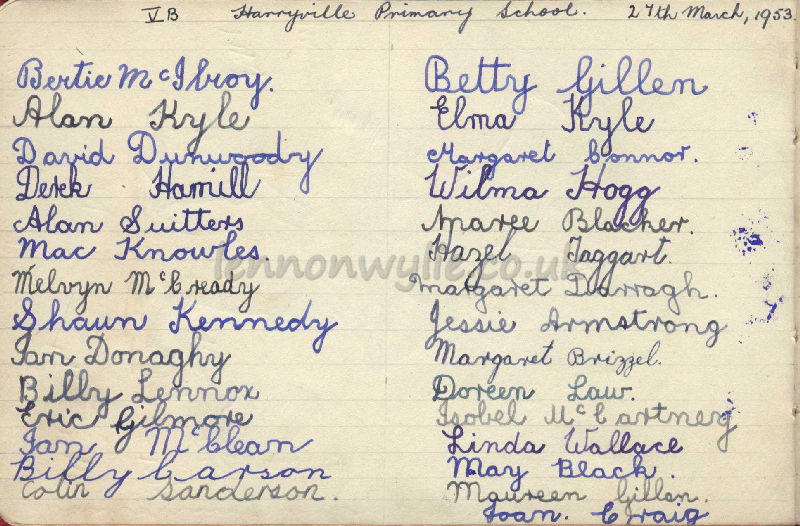 VB Harryville Primary School. 27th March, 1953.
Bertie McIlroy.
Alan Kyle
David Dunwoody
Derek Hamill
Alan Suitters
Mac Knowles.
Melvyn McCready
Shaun Kennedy
Ian Donaghy
Billy Lennox
Eric Gilmore
Ian McClean
Billy Carson
Colin Sanderson.
Betty Gillen
Elma Kyle
Margaret Connor.
Wilma Hogg
Maree Blacher.
Hazel Taggart.
Margaret Darragh.
Jessie Armstrong
Margaret Brizzel.
Doreen Law.
Isobel McCartney
Linda Wallace
May Black.
Maureen Gillen.
Joan. Craig
lennonwylie.co.uk